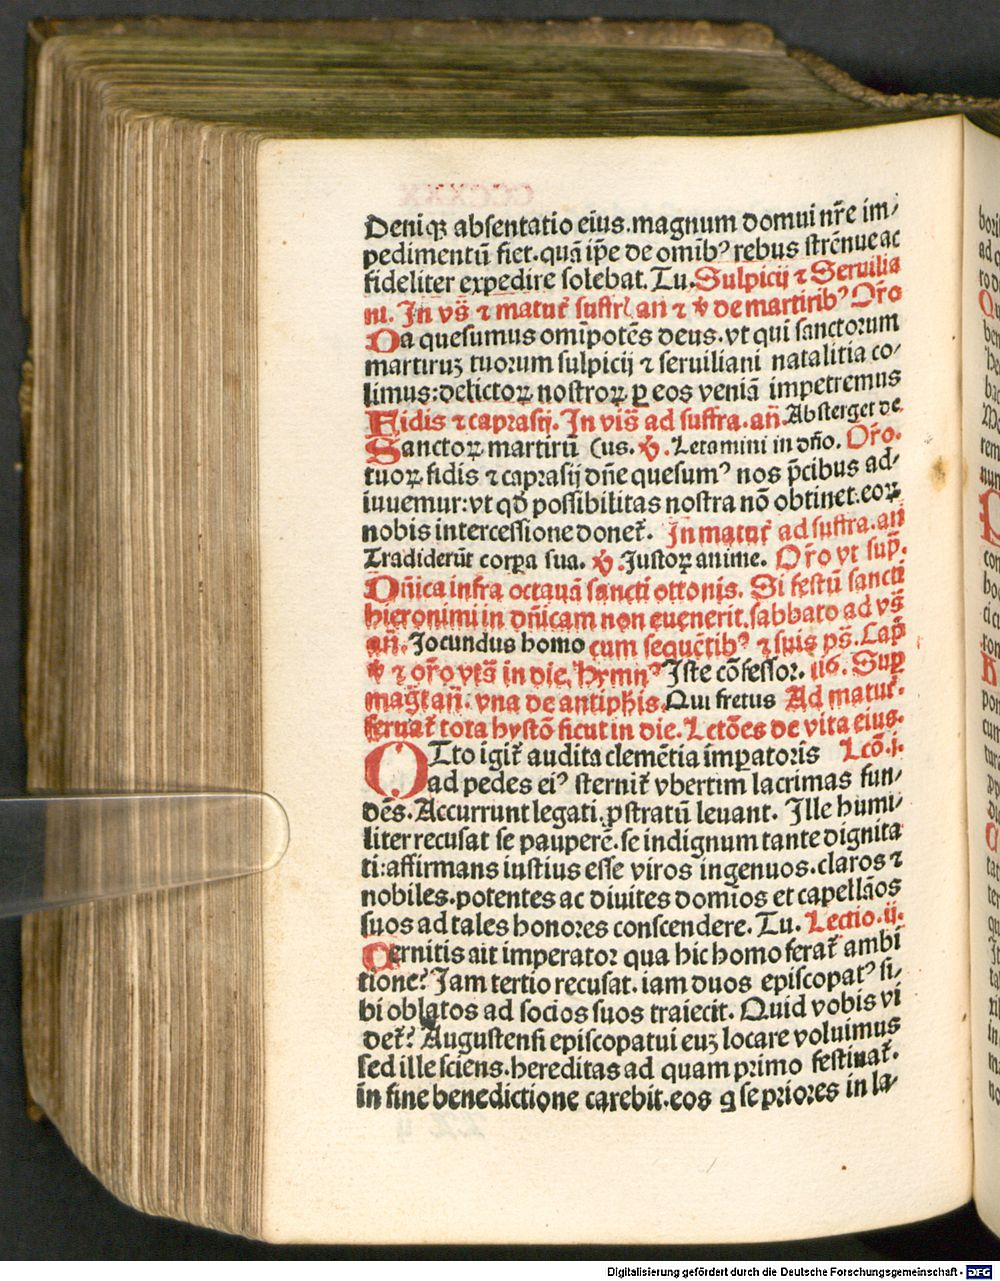 Deniqꝫ absentatio eius.magnum domui nr̄e im⸗
pedimentū fiet.quā ip̄e de omībꝰ rebus strēnue ac
fideliter expedire solebat.Tu.Sulpicij ⁊ Seruilia
ni. In vs̄ ⁊ matut̄ suffrͥ an ⁊ ꝟ de martiribꝰ Or̄o
Da quesumus omīpotēs deus.vt qui sanctorum
martiruꝫ tuorum sulpicij ⁊ seruiliani natalitia co⸗
limus:delictoꝝ nostroꝝ ꝑ eos veniā impetremus
Fidis ⁊ caprasij. In vis̄ ad suffra.an̄.Absterget de
Sanctoꝝ martirū (us.ꝟ.Letamini in dn̄o. Or̄o.
tuoꝝ fidis ⁊ caprasij dn̄e quesumꝰ nos p̄cibus ad⸗
iuuemur:vt qd̄ possibilitas nostra nō obtinet.eoꝝ
nobis intercessione donet̄. In matut̄ ad suffra.an̄
Tradiderūt corꝑa sua. ꝟ.Justoꝝ anime. Or̄o vt sup̄.
Dn̄ica infra octauā sancti ottonis. Si festū sancti
hieronimi in dn̄icam non euenerit.sabbato ad vs̄
an̄. Jocundus homo cum sequētibꝰ ⁊ suis ps̄. Cap̄
ꝟ ⁊ or̄o vts̄ in die. hymnꝰ Iste cōfessor. 116. Suꝑ
mag̅t an̄. vna de antiph̄is.Qui fretus Ad matut̄.
seruat̄ tota hystō sicut in die. Lctōes de vita eius.
OTto igit̄ audita clemētia imꝑatoris Lcō.j.
ad pedes eiꝰ sternit̄ vbertim lacrimas fun⸗
dēs.Accurrunt legati.ꝓstratū leuant. Ille humi⸗
liter recusat se pauperē.se indignum tante dignita
ti:affirmans iustius esse viros ingenuos.claros ⁊
nobiles.potentes ac diuites domīos et capellāos
suos ad tales honores conscendere. Tu. Lectio.ij.
Cernitis ait imperator qua hic homo ferat̄ ambi
tione? Iam tertio recusat.iam duos episcopatꝰ si⸗
bi oblatos ad socios suos traiecit. Quid vobis vi
det̄? Augustensi episcopatui euꝫ locare voluimus
sed ille sciens.hereditas ad quam primo festinat̄.
in fine benedictione carebit.eos q se priores in la⸗
Digitalisierung gefördert durch die Deutsche Forschungsgemeinschaft - DFG